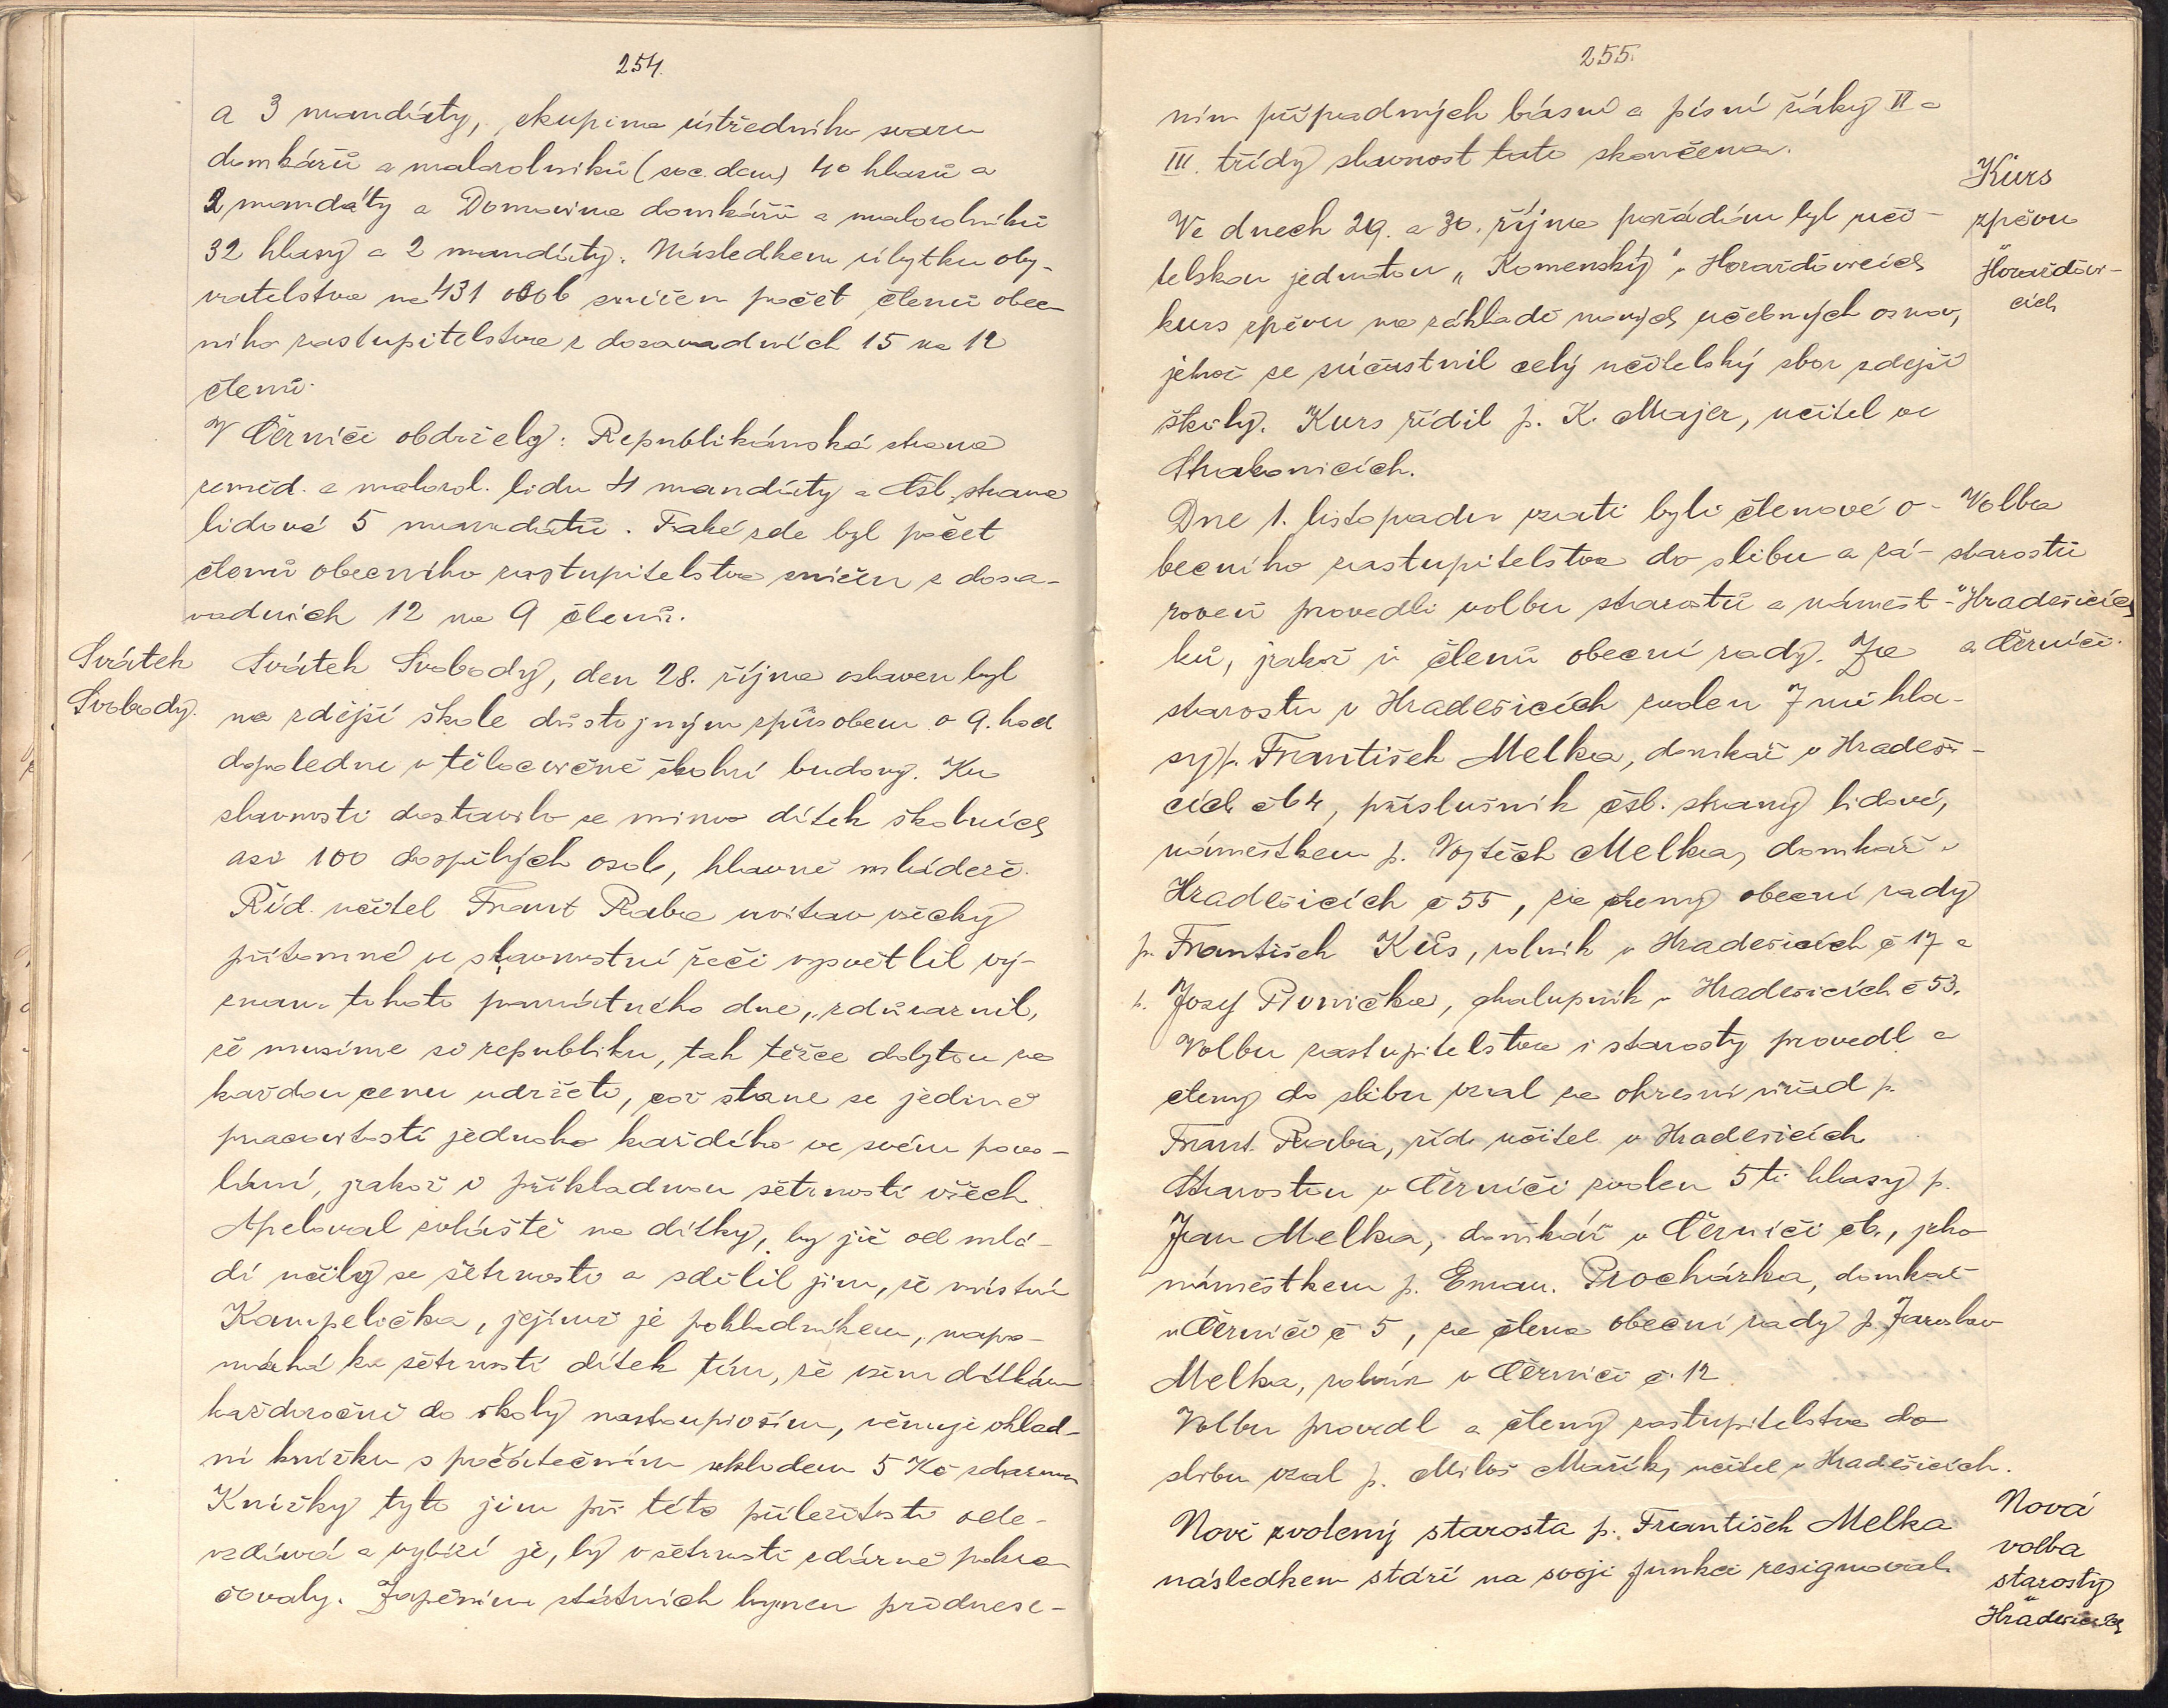 254.
a 3 mandáty, skupina ústředního svazu
domkářů a malorolníků (soc. dem) 40 hlasů a
2 mandáty a Domovina domkářů a malorolníků
32 hlasy a 2 mandáty. Následkem úbytku oby-
vatelstva na 431 osob snížen počet členů obec
ního zastupitelstva z dosavadních 15 na 12
členů.
V Černíči obdržely: Republikánská strana
zeměd. a malorol. lidu 4 mandáty a čsl. strana
lidová 5 mandátů. Také zde byl počet
členů obecního zastupitelstva snížen z dosa-
vadních 12 na 9 členů.
Svátek
Svobody.
Svátek Svobody, den 28. října oslaven byl
na zdější škole důstojným způsobem o 9. hod
dopoledne v tělocvičně školní budovy. Ku
slavnosti dostavilo se mimo dítek školních
asi 100 dospělých osob, hlavně mládeže.
Říd. učitel Frant Raba uvítav všecky
přítomné ve slavnostní řeči vysvětlil vý-
znam tohoto památného dne, zdůraznil,
že musíme si republiku, tak těžce dobytou za
každou cenu udržeti, což stane se jedině
pracovitostí jednoho každého ve svém povo-
lání, jakož i příkladnou šetrností všech
Apeloval zvláště na dítky, by již od mlá-
dí učily se šetrnosti a sdělil jim, že místní
Kampelička, jejímž je pokladníkem, napo-
máhá ku šetrnosti dítek tím, že všem dítkám
každoročně do školy nastoupivším, věnuje vklad-
ní knížku s počátečním vkladem 5 Kč zdarma
Knížky tyto jim při této příležitosti ode-
vzdává a vybízí je, by v šetrnosti zdárně pokra
čovaly. Zapěním státních hymen přednese-
255.
ním případných básní a písní žáky II a
III. třídy slavnost tato skončena.
Kurs
zpěvu
v
Horažďov-
cích
Ve dnech 29. a 30. října pořádán byl uči-
telskou jednotou „Komenský" v Horažďovicích
kurs zpěvu na základě nových učebných osnov,
jehož se súčastnil celý učitelský sbor zdejší
školy. Kurs řídil p. K. Majer, učitel ve
Strakonicích.
Volba
starostů
v Hradešicích
a Černíči.
Dne 1. listopadu vzati byli členové o-
becního zastupitelstva do slibu a zá-
roveň provedli volbu starostů a náměst-
ků, jakož i členů obecní rady. Za
starostu v Hradešicích zvolen 7mi hla-
sy p. František Melka, domkář v Hradeši-
cích čís 4, příslušník čsl. strany lidové,
náměstkem p. Vojtěch Melka, domkář v
Hradešicích č 55, za členy obecní rady
p. František Kůs, rolník v Hradešicích č 17 a
p. Josef Pivnička, chalupník v Hradešicích č 53.
Volbu zastupitelstva i starosty provedl a
členy do slibu vzal za okresní úřad p.
Frant. Raba, říd. učitel v Hradešicích
Starostou v Černíči zvolen 5ti hlasy p.
Jan Melka, domkář v Černíči č., jeho
náměstkem p. Eman. Procházka, domkář
v Černíči č 5, za člena obecní rady p. Jaroslav
Melka, rolník v Černíči č. 12
Volbu provedl a členy zastupitelstva do
slibu vzal p. Miloš Mařík, učitel v Hradešicích.
Nová
volba
starosty
v
Hradešicích
Nově zvolený starosta p. František Melka
následkem stáří na svoji funkci resignoval.